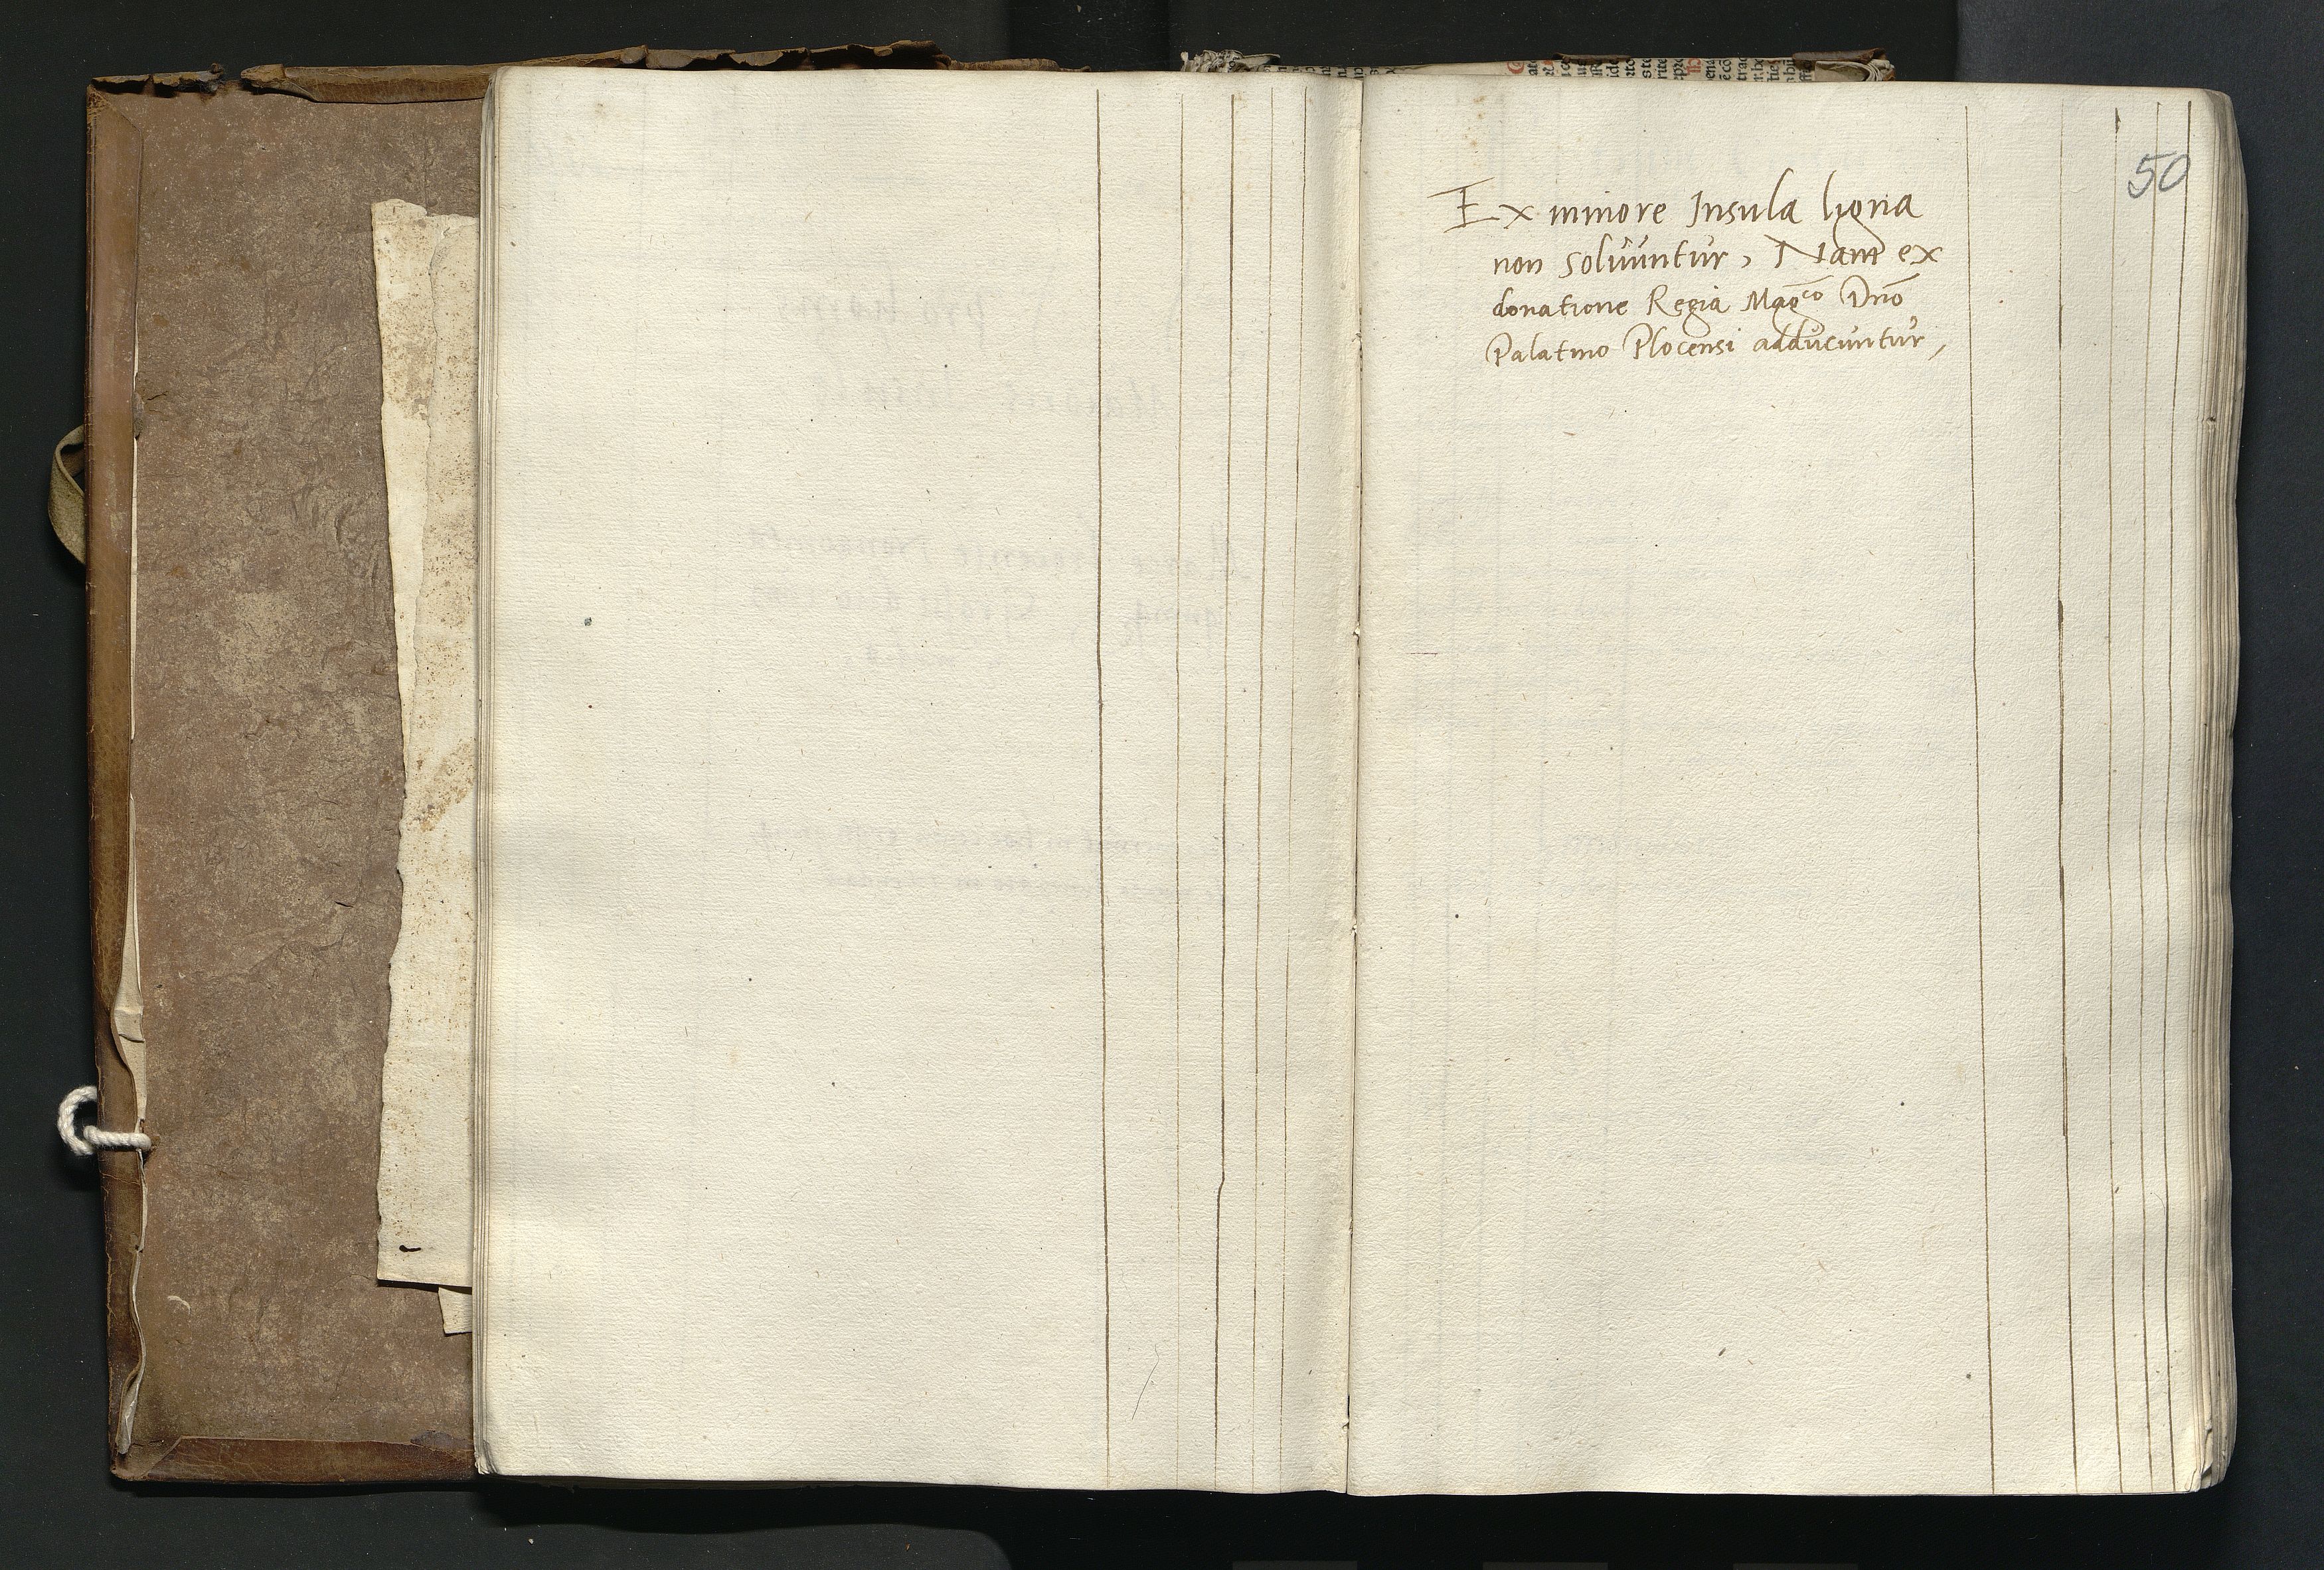 50
Ex minore Insula ligna
non solvuntur, Nam ex
donatione Regia Mag̃co Dño
Palatino Plocensi adducuntur,